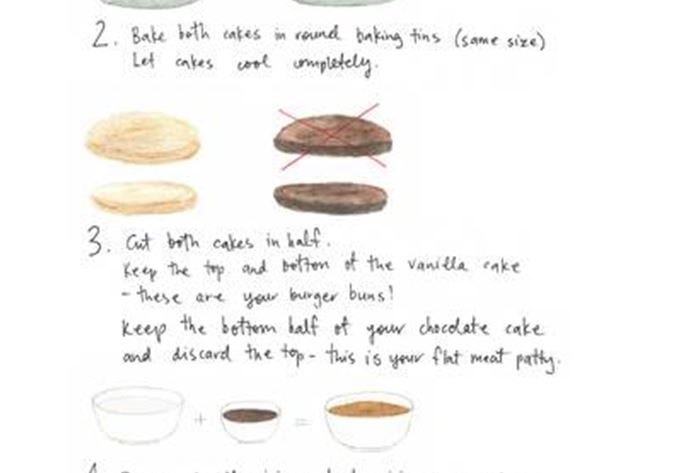 2. Bake both cakes in round baking tins (same size)
Let cakes cool completely.
3. Cut both cakes in half.
Keep the top and bottom of the vanilla cake
- these are your burger buns!
Keep the bottom half of your chocolate cake
and discard the top - this is your flat meat patty.
+ =